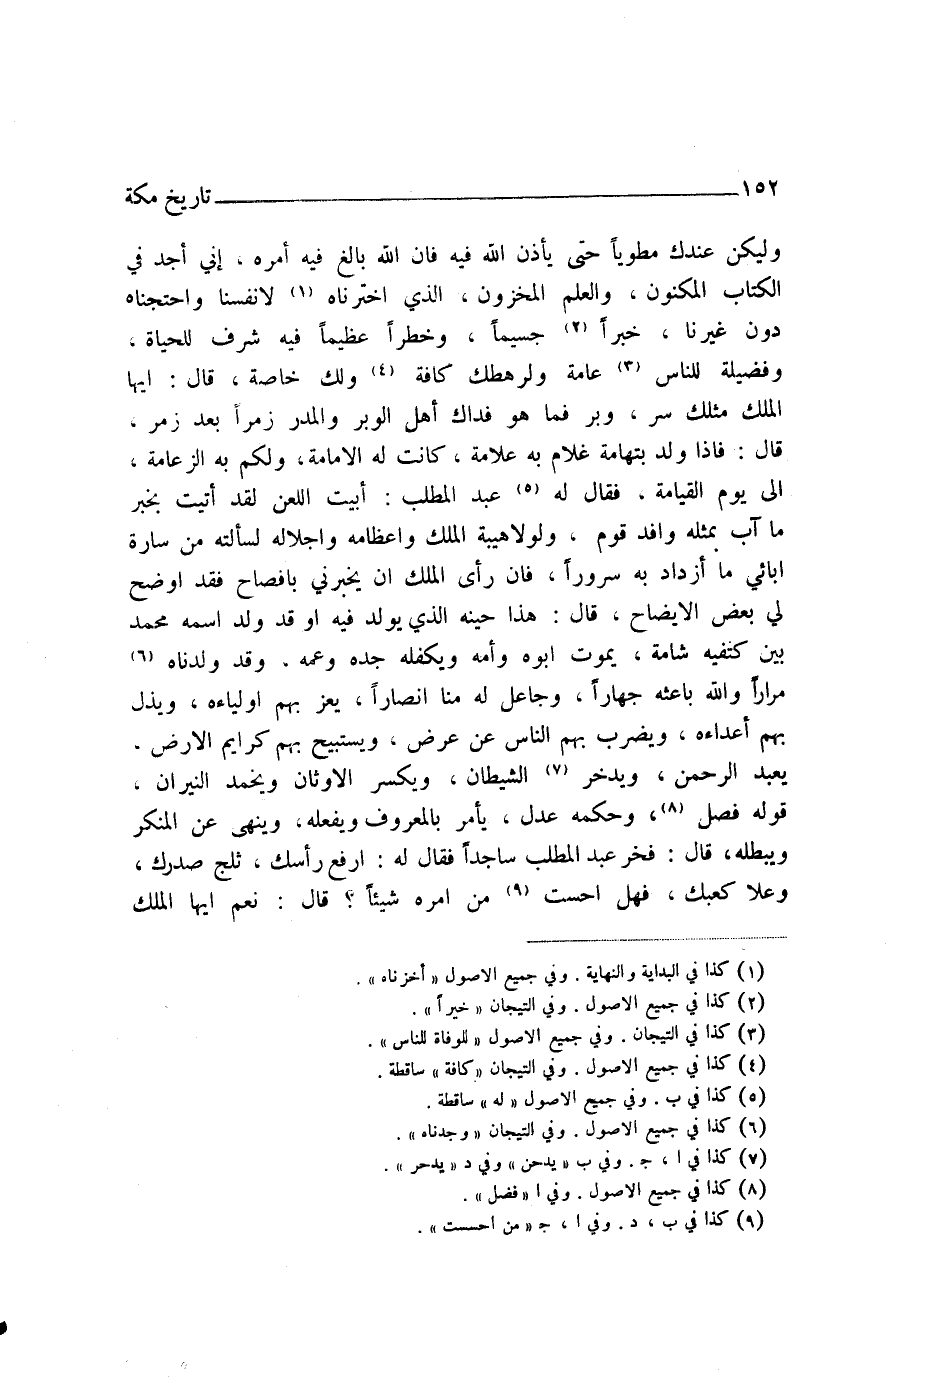 ١٥٢ تاريخ مكة
وليكن عندك مطوياً حتى يأذن الله فيه فان الله بالغ فيه أمره ، إني أجد في
الكتاب المكنون ، والعلم المخزون ، الذي اخترناه (١) لانفسنا واحتجناه
دون غيرنا ، خبراً (٢) جسيماً ، وخطراً عظيماً فيه شرف للحياة ،
وفضيلة للناس (٣) عامة ولرهطك كافة (٤) ولك خاصة ، قال : ايها
الملك مثلك سر ، وبر فما هو فداك أهل الوبر والمدر زمراً بعد زمر ،
قال : فاذا ولد بتهامة غلام به علامة ، كانت له الامامة ، ولكم به الزعامة ،
الى يوم القيامة . فقال له (٥) عبد المطلب : أبيت اللعن لقد أتيت بخبر
ما آب بمثله وافد قوم ، ولولاهيبة الملك واعظامه واجلاله لسألته من سارة
ابائي ما أزداد به سروراً ، فان رأى الملك ان يخبرني بافصاح فقد اوضح
لي بعض الايضاح ، قال : هذا حينه الذي يولد فيه او قد ولد اسمه محمد
بين كتفيه شامة ، يموت ابوه وأمه ويكفله جده وعمه . وقد ولدناه (٦)
مراراً والله باعثه جهاراً ، وجاعل له منا انصاراً ، يعز بهم اولياءه ، ويذل
بهم أعداءه ، ويضرب بهم الناس عن عرض ، ويستبيح بهم كرايم الارض .
يعبد الرحمن ، ويدخر (٧) الشيطان ، ويكسر الاوثان ويخمد النيران ،
قوله فصل (٨) ، وحكمه عدل ، يأمر بالمعروف ويفعله ، وينهى عن المنكر
ويبطله ، قال : فخر عبد المطلب ساجداً فقال له : ارفع رأسك ، ثلج صدرك ،
وعلا كعبك ، فهل احست (٩) من امره شيئاً ؟ قال : نعم ايها الملك
(١) كذا في البداية والنهاية . وفي جميع الاصول « أخزناه » .
(٢) كذا في جميع الاصول . وفي التيجان « خيراً » .
(٣) كذا في التيجان . وفي جميع الاصول « للوفاة للناس » .
(٤) كذا في جميع الاصول . وفي التيجان « كافة » ساقطة .
(٥) كذا في ب . وفي جميع الاصول « له » ساقطة .
(٦) كذا في جميع الاصول . وفي التيجان « وجدناه » .
(٧) كذا في ا ، ج . وفي ب « يدحن » وفي د « يدحر » .
(٨) كذا في جميع الاصول . وفي ا « فضل » .
(٩) كذا في ب ، د . وفي ا ، ج « من احسست » .